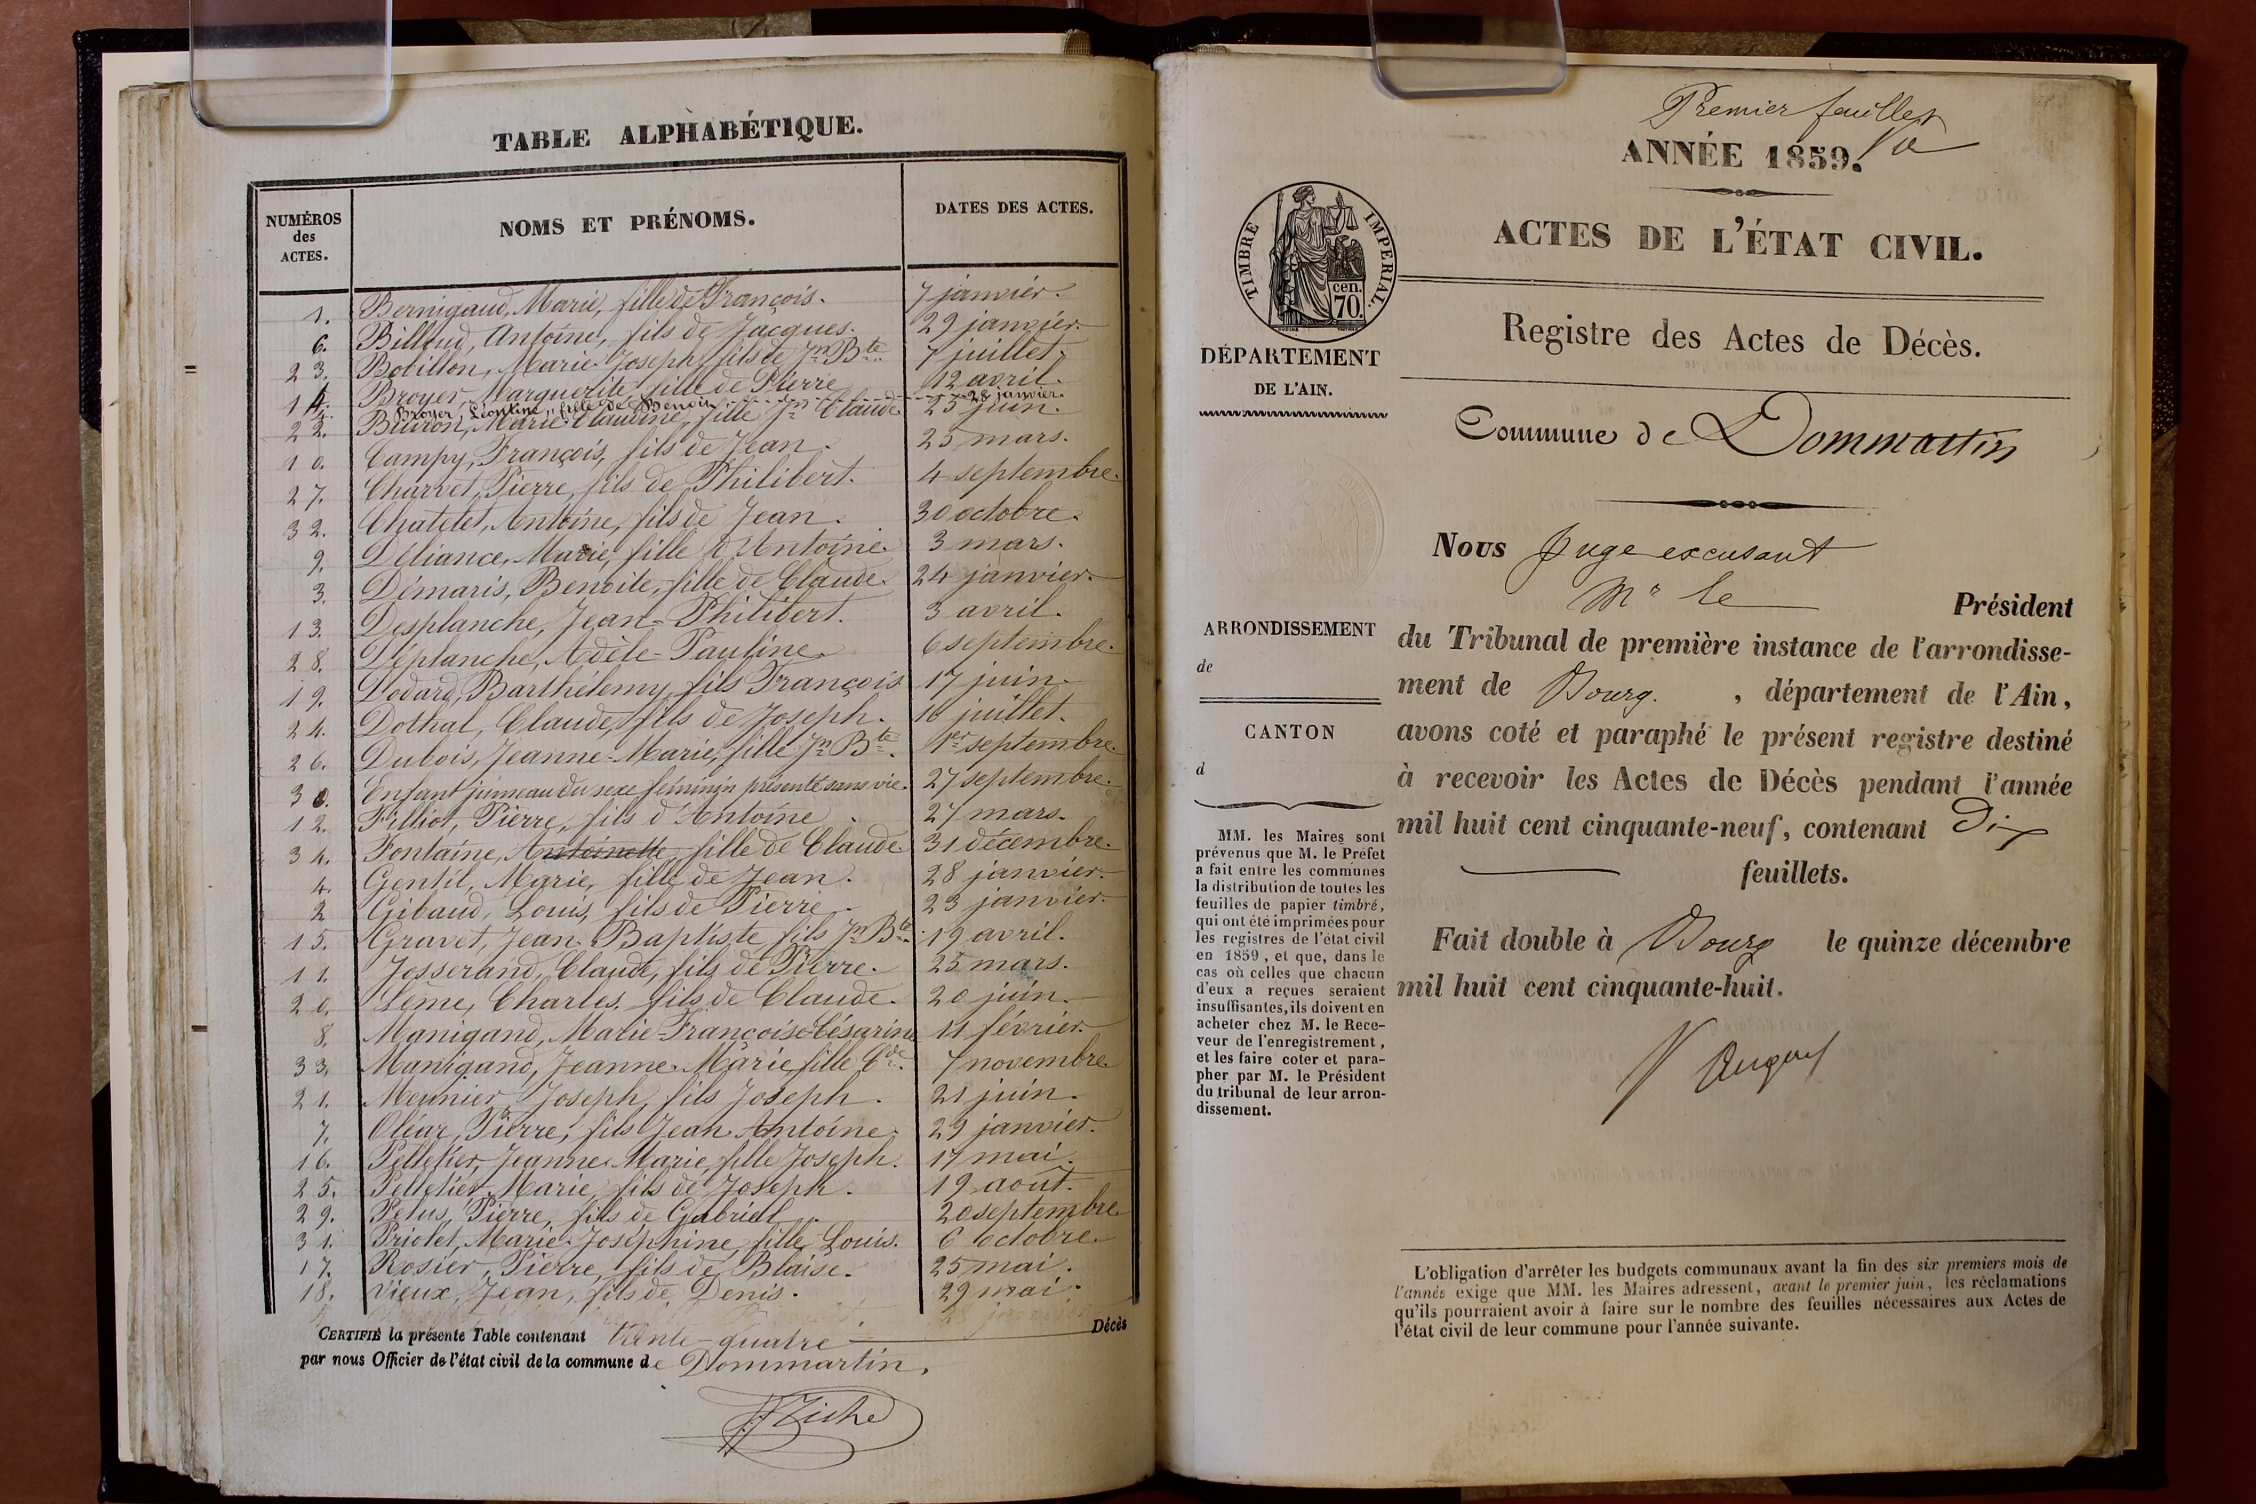 TABLE ALPHABÉTIQUE.
NUMÉROS des ACTES. NOMS ET PRÉNOMS. DATES DES ACTES.
1. Bernigaud, Marie, fille de François. 7 janvier.
6. Billoud, Antoine, fils de Jacques. 29 janvier.
23. Botillon, Marie-Joseph, fils de Jn Bte 7 juillet.
14. Broyer, Marguerite, fille de Pierre 12 avril.
Broyer, Léontine, fille de Benoit 28 janvier.
22. Buiron, Marie-Claudine, fille Jn Claude 25 juin.
10. Campy, François, fils de Jean. 25 mars.
27. Charvet, Pierre, fils de Philibert. 4 septembre.
32. Chatelet, Antoine, fils de Jean. 30 octobre.
9. Déliance, Marie, fille d'Antoine. 3 mars.
3. Démaris, Benoite, fille de Claude. 24 janvier.
13. Desplanche, Jean-Philibert. 3 avril.
28. Déplanche, Adèle-Pauline. 6 septembre.
19. Dodard, Barthélemy, fils François 17 juin.
24. Dothal, Claude, fils de Joseph. 16 juillet.
26. Dubois, Jeanne-Marie, fille Jn Bte. 1er septembre.
30. Enfant jumeau du sexe féminin présenté sans vie. 27 septembre.
12. Filliot, Pierre, fils d'Antoine. 27 mars.
34. Fontaine, Antoinette, fille de Claude. 31 décembre.
4. Gentil, Marie, fille de Jean. 28 janvier.
2 Gibaud, Louis, fils de Pierre. 23 janvier.
15. Gravet, Jean-Baptiste fils Jn Bte. 19 avril.
11. Josserand, Claude, fils de Pierre. 25 mars.
20. Lème, Charles, fils de Claude. 20 juin.
8. Manigand, Marie Françoise Césarine 11 février.
33. Manigand, Jeanne-Marie, fille Cde. 7 novembre
21. Meunier, Joseph, fils Joseph. 21 juin.
7. Oléar, Pierre, fils Jean Antoine. 29 janvier.
16. Pelletier, Jeanne-Marie, fille Joseph. 17 mai.
25. Pelletier, Marie, fils de Joseph. 19 août.
29. Pelus, Pierre, fils de Gabriel. 20 septembre
31. Priolet, Marie-Joséphine, fille Louis. 6 octobre.
17. Rosier, Pierre, fils de Blaise. 25 mai.
18. Vieux, Jean, fils de Denis. 29 mai.
CERTIFIÉ la présente Table contenant trente-quatre Décès
par nous Officier de l'état civil de la commune de Dommartin.
Premier feuillet
ANNÉE 1859.
ACTES DE L'ÉTAT CIVIL.
TIMBRE IMPERIAL.
cen. 70.
Registre des Actes de Décès.
DÉPARTEMENT
DE L'AIN.
Commune de Dommartin
Nous Juge excusant
Mr le Président
du Tribunal de première instance de l'arrondisse-
ment de Bourg. , département de l'Ain,
avons coté et paraphé le présent registre destiné
à recevoir les Actes de Décès pendant l'année
mil huit cent cinquante-neuf, contenant Dix
feuillets.
Fait double à Bourg le quinze décembre
mil huit cent cinquante-huit.
ARRONDISSEMENT
de
CANTON
d
MM. les Maires sont
prévenus que M. le Préfet
a fait entre les communes
la distribution de toutes les
feuilles de papier timbré,
qui ont été imprimées pour
les registres de l'état civil
en 1859, et que, dans le
cas où celles que chacun
d'eux a reçues seraient
insuffisantes, ils doivent en
acheter chez M. le Rece-
veur de l'enregistrement,
et les faire coter et para-
pher par M. le Président
du tribunal de leur arron-
dissement.
L'obligation d'arrêter les budgets communaux avant la fin des six premiers mois de
l'année exige que MM. les Maires adressent, avant le premier juin, les réclamations
qu'ils pourraient avoir à faire sur le nombre des feuilles nécessaires aux Actes de
l'état civil de leur commune pour l'année suivante.